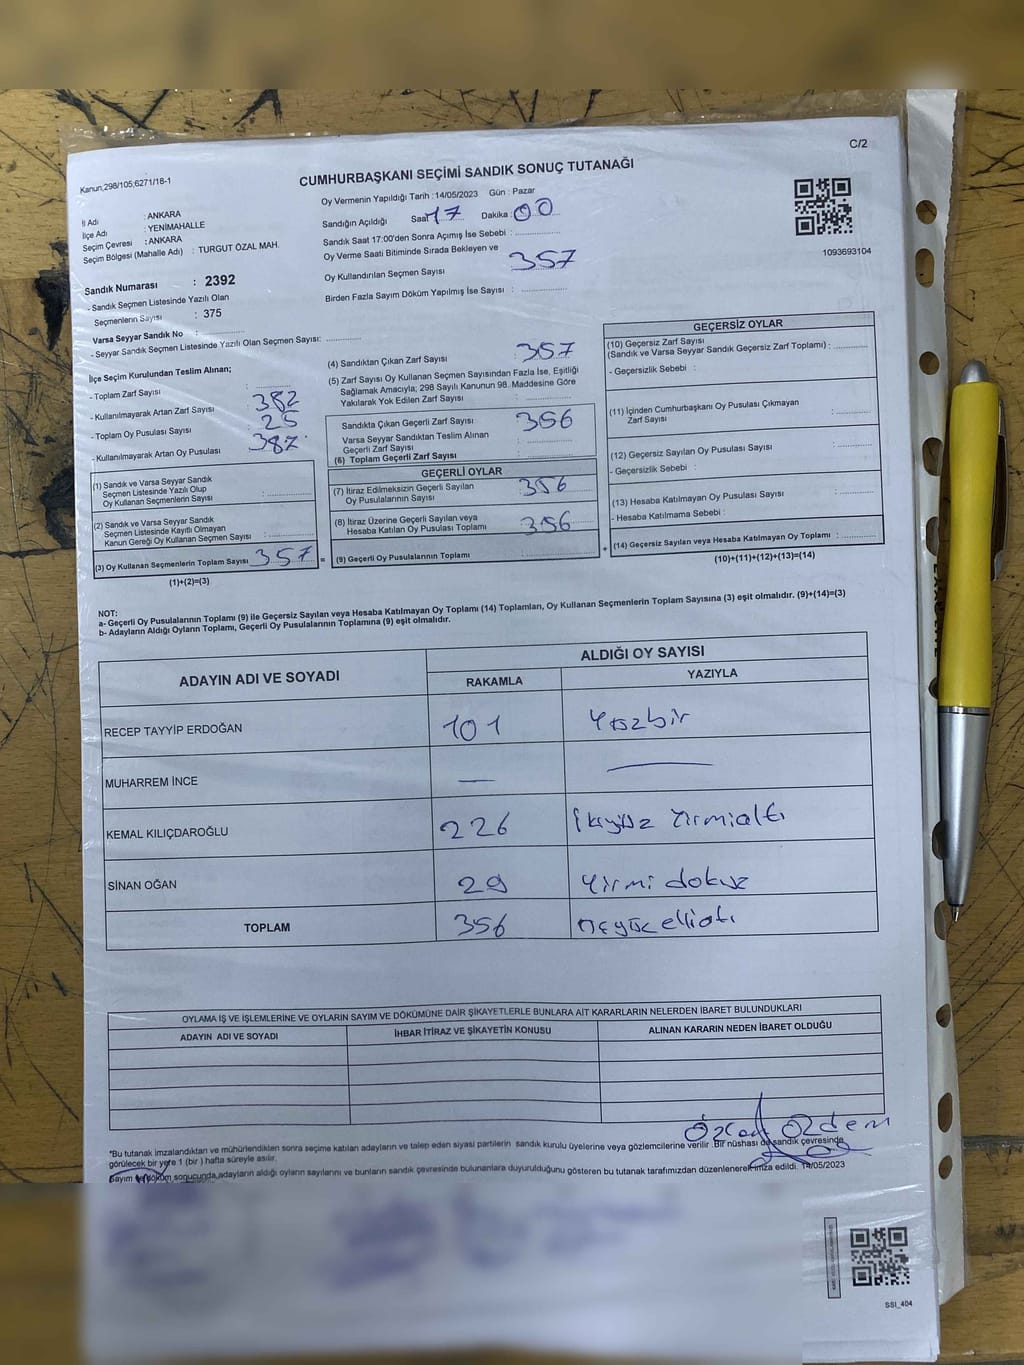 C/2
Kanun,298/105;6271/18-1
CUMHURBAŞKANI SEÇİMİ SANDIK SONUÇ TUTANAĞI
İl Adı : ANKARA
İlçe Adı : YENİMAHALLE
Seçim Çevresi : ANKARA
Seçim Bölgesi (Mahalle Adı) : TURGUT ÖZAL MAH.
Oy Vermenin Yapıldığı Tarih : 14/05/2023 Gün : Pazar
Sandığın Açıldığı Saat 17 Dakika : 00
Sandık Saat 17:00'den Sonra Açmış İse Sebebi :
Oy Verme Saati Bitiminde Sırada Bekleyen ve
Oy Kullandırılan Seçmen Sayısı 357
Birden Fazla Sayım Döküm Yapılmış İse Sayısı :
1093693104
Sandık Numarası : 2392
- Sandık Seçmen Listesinde Yazılı Olan
Seçmenlerin Sayısı : 375
Varsa Seyyar Sandık No :
- Seyyar Sandık Seçmen Listesinde Yazılı Olan Seçmen Sayısı:
İlçe Seçim Kurulundan Teslim Alınan;
- Toplam Zarf Sayısı : 382
- Kullanılmayarak Artan Zarf Sayısı : 25
- Toplam Oy Pusulası Sayısı : 387
- Kullanılmayarak Artan Oy Pusulası :
(1) Sandık ve Varsa Seyyar Sandık
Seçmen Listesinde Yazılı Olup
Oy Kullanan Seçmenlerin Sayısı :
(2) Sandık ve Varsa Seyyar Sandık
Seçmen Listesinde Kayıtlı Olmayan
Kanun Gereği Oy Kullanan Seçmen Sayısı :
(3) Oy Kullanan Seçmenlerin Toplam Sayısı 357
(1)+(2)=(3)
(4) Sandıktan Çıkan Zarf Sayısı : 357
(5) Zarf Sayısı Oy Kullanan Seçmen Sayısından Fazla İse, Eşitliği
Sağlamak Amacıyla; 298 Sayılı Kanunun 98. Maddesine Göre
Yakılarak Yok Edilen Zarf Sayısı :
Sandıkta Çıkan Geçerli Zarf Sayısı : 356
Varsa Seyyar Sandıktan Teslim Alınan
Geçerli Zarf Sayısı :
(6) Toplam Geçerli Zarf Sayısı :
GEÇERLİ OYLAR
(7) İtiraz Edilmeksizin Geçerli Sayılan
Oy Pusulalarının Sayısı : 356
(8) İtiraz Üzerine Geçerli Sayılan veya
Hesaba Katılan Oy Pusulası Toplamı : 356
= (9) Geçerli Oy Pusulalarının Toplamı :
GEÇERSİZ OYLAR
(10) Geçersiz Zarf Sayısı
(Sandık ve Varsa Seyyar Sandık Geçersiz Zarf Toplamı) :
- Geçersizlik Sebebi :
(11) İçinden Cumhurbaşkanı Oy Pusulası Çıkmayan
Zarf Sayısı :
(12) Geçersiz Sayılan Oy Pusulası Sayısı :
- Geçersizlik Sebebi :
(13) Hesaba Katılmayan Oy Pusulası Sayısı :
- Hesaba Katılmama Sebebi :
+ (14) Geçersiz Sayılan veya Hesaba Katılmayan Oy Toplamı :
(10)+(11)+(12)+(13)=(14)
NOT:
a- Geçerli Oy Pusulalarının Toplamı (9) ile Geçersiz Sayılan veya Hesaba Katılmayan Oy Toplamı (14) Toplamları, Oy Kullanan Seçmenlerin Toplam Sayısına (3) eşit olmalıdır. (9)+(14)=(3)
b- Adayların Aldığı Oyların Toplamı, Geçerli Oy Pusulalarının Toplamına (9) eşit olmalıdır.
ADAYIN ADI VE SOYADI ALDIĞI OY SAYISI
RAKAMLA YAZIYLA
RECEP TAYYİP ERDOĞAN 101 Yüzbir
MUHARREM İNCE — —
KEMAL KILIÇDAROĞLU 226 İkiyüz Yirmialtı
SİNAN OĞAN 29 Yirmi dokuz
TOPLAM 356 üçyüz ellialtı
OYLAMA İŞ VE İŞLEMLERİNE VE OYLARIN SAYIM VE DÖKÜMÜNE DAİR ŞİKAYETLERLE BUNLARA AİT KARARLARIN NELERDEN İBARET BULUNDUKLARI
ADAYIN ADI VE SOYADI İHBAR İTİRAZ VE ŞİKAYETİN KONUSU ALINAN KARARIN NEDEN İBARET OLDUĞU
Özdem
*Bu tutanak imzalandıktan ve mühürlendikten sonra seçime katılan adayların ve talep eden siyasi partilerin sandık kurulu üyelerine veya gözlemcilerine verilir. Bir nüshası da sandık çevresinde
görülecek bir yere 1 (bir) hafta süreyle asılır.
Sayım ve döküm sonucunda,adayların aldığı oyların sayılarını ve bunların sandık çevresinde bulunanlara duyurulduğunu gösteren bu tutanak tarafımızdan düzenlenerek imza edildi. 14/05/2023
SSI_404